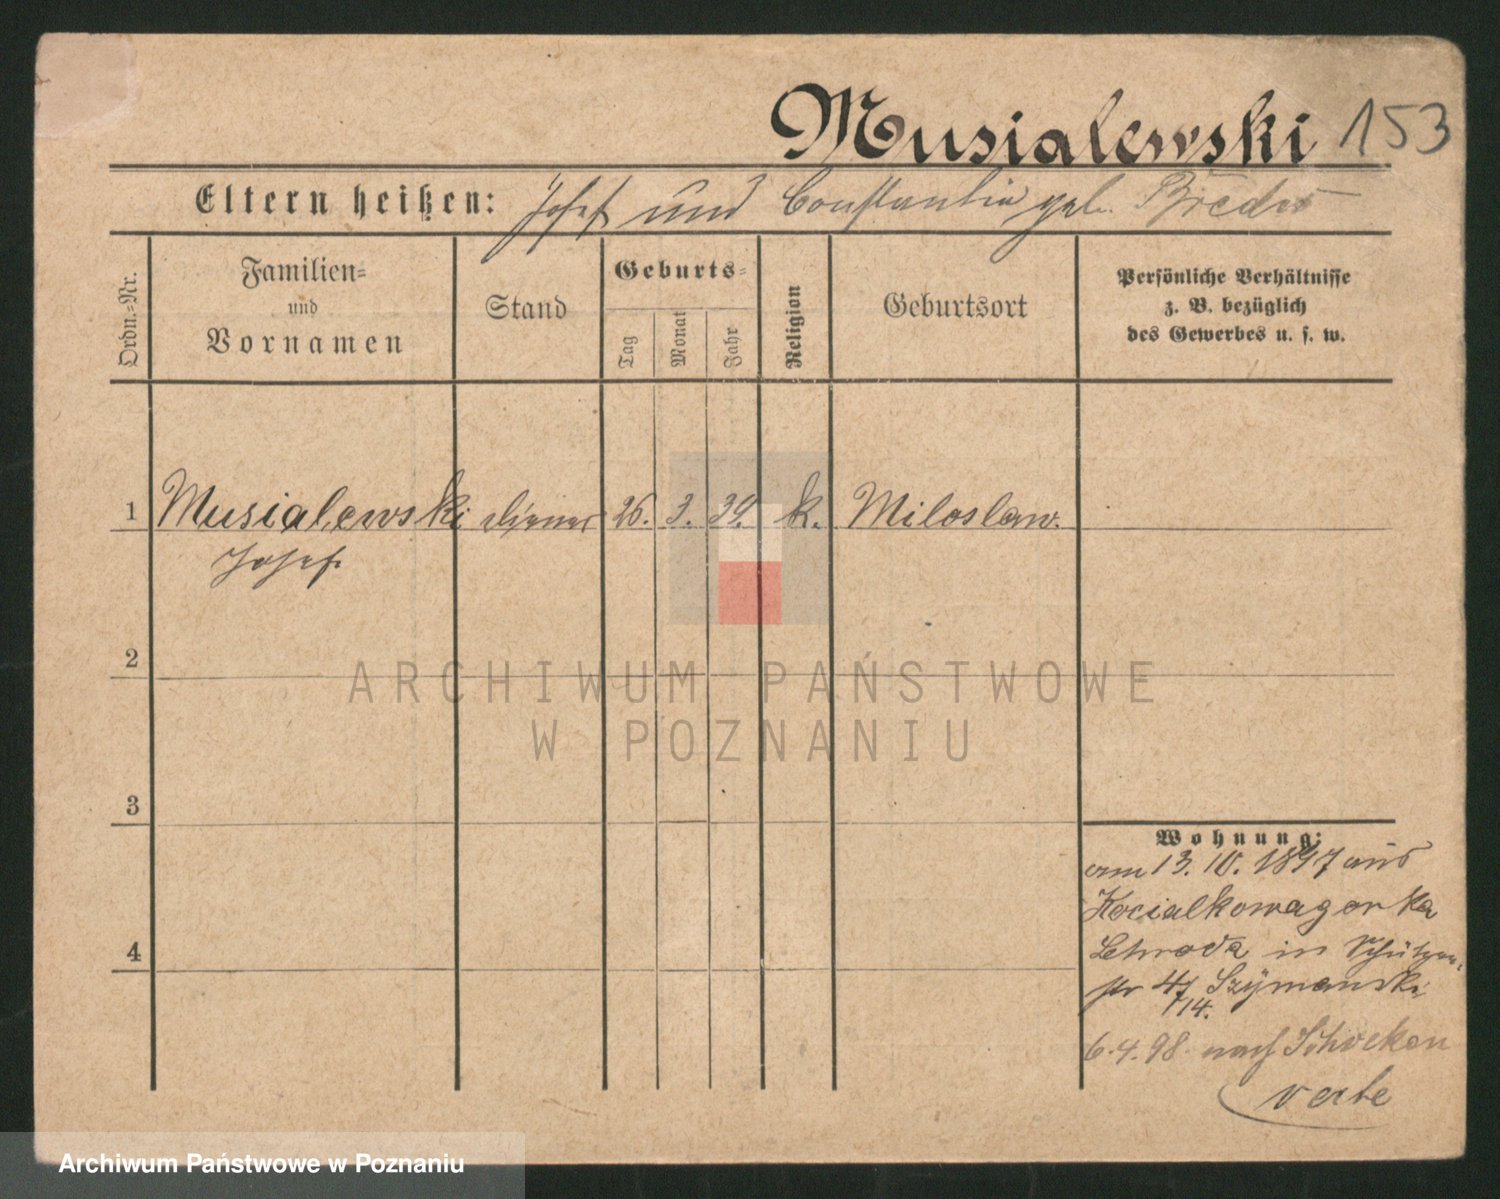 Musialewski 153
Eltern heißen: Josef und Constantia geb.
Ordn.=Nr.
Familien=
und
Vornamen
Stand
Geburts=
Tag
Monat
Jahr
Religion
Geburtsort
Persönliche Verhältnisse
z. B. bezüglich
des Gewerbes u. s. w.
1 Musialewski Diener 26. 3. 39. k. Miloslaw.
Josef
2
ARCHIWUM PAŃSTWOWE
W POZNANIU
3
4
Wohnung:
am 13. 10. 1897 aus
Kocialkowagorka
Schroda in Schützen
str 4/ Szymanski
/14.
6.4.98. nach Schrekon
Archiwum Państwowe w Poznaniu